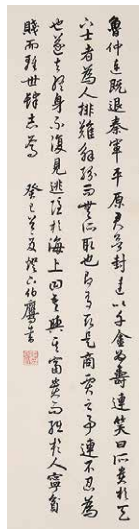 魯仲連既退秦軍平原君欲封連以千金為壽連笑曰所貴於天
下士者為人排難解紛而無所取也即有取是商賈之事連不忍為
也遂去終身不復見逃隱於海上曰吾與其富貴而詘於人寧貧
賤而輕世肆志焉 癸巳首夏燈下伯鷹書